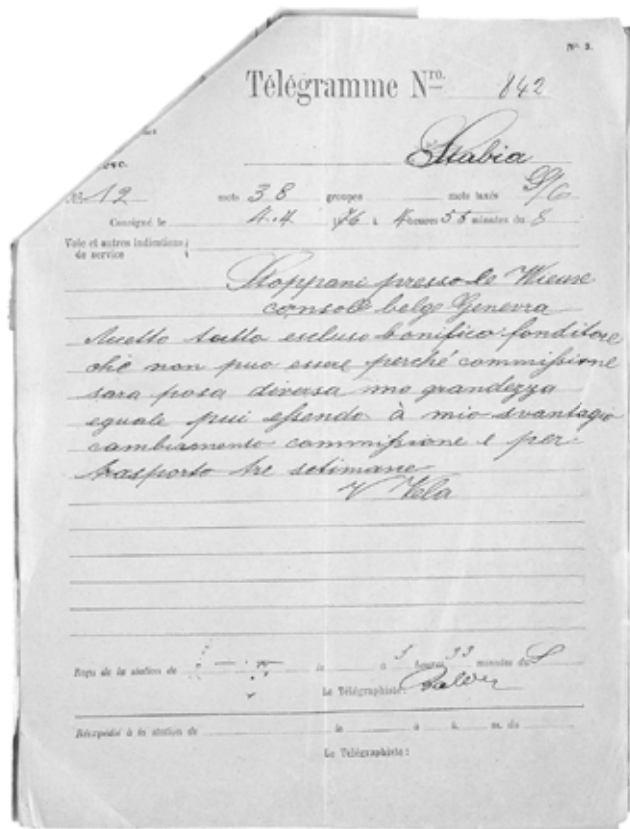 N° 2.
Télégramme Nro. 842
Stabia
No 12 mots 38 groupes mots taxés
Consigné le 4.4 1876 à 4 heures 55 minutes du S
Voie et autres indications
de service
Stoppani presso de Wieuse
console belge Genevra
Accetto tutto escluso bonifico fonditore
che non puo essere perché commissione
sara posa diversa ma grandezza
eguale piui essendo à mio svantagio
cambiamento commissione e per
trasporto tre setimane
V Vela
Reçu de la station de le à 5 heures 33 minutes du S
Le Télégraphiste:
Réexpédié à la station de le à h. m. du
Le Télégraphiste: